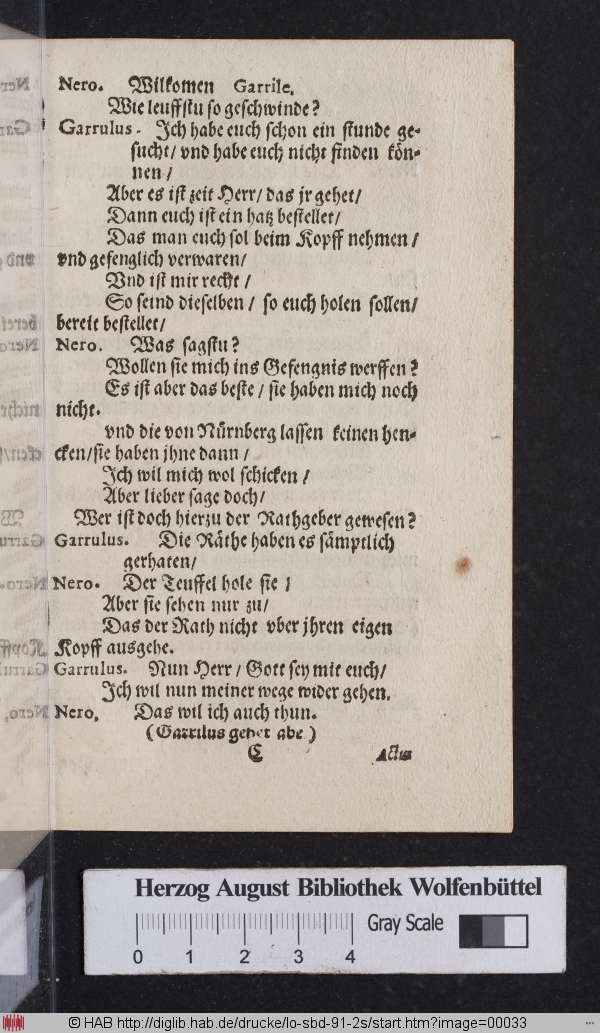 Nero. Wilkomen Garrile.
Wie leuffstu so geschwinde?
Garrulus. Ich habe euch schon ein stunde ge-
sucht/ vnd habe euch nicht finden kön-
nen/
Aber es ist zeit Herr/ das jr gehet/
Dann euch ist ein hatz bestellet/
Das man euch sol beim Kopff nehmen/
vnd gefenglich verwaren/
Vnd ist mir recht/
So seind dieselben/ so euch holen sollen/
bereit bestellet/
Nero. Was sagstu?
Wollen sie mich ins Gefengnis werffen?
Es ist aber das beste/ sie haben mich noch
nicht.
vnd die von Nürnberg lassen keinen hen-
cken/sie haben jhne dann/
Ich wil mich wol schicken/
Aber lieber sage doch/
Wer ist doch hierzu der Rathgeber gewesen?
Garrulus. Die Räthe haben es sämptlich
gerhaten/
Nero. Der Teuffel hole sie/
Aber sie sehen nur zu/
Das der Rath nicht vber jhren eigen
Kopff ausgehe.
Garrulus. Nun Herr/ Gott sey mit euch/
Ich wil nun meiner wege wider gehen.
Nero. Das wil ich auch thun.
(Garrulus gehet abe)
C Actus
Herzog August Bibliothek Wolfenbüttel
Gray Scale
0 1 2 3 4
© HAB http://diglib.hab.de/drucke/lo-sbd-91-2s/start.htm?image=00033